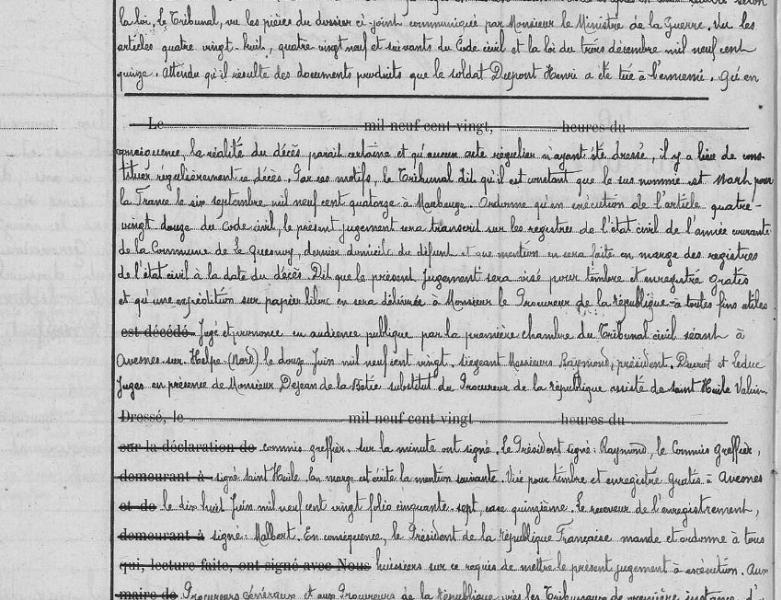 la loi, le Tribunal, vu les pièces du dossier ci joint communiqué par Monsieur le Ministre de la Guerre. Vu les
articles quatre vingt huit, quatre vingt neuf et suivants du Code civil et la loi du trois decembre mil neuf cent
quinze. Attendu qu'il résulte des documents produits que le soldat Dupont Henri a été tué à l'ennemi. Qu'en
Le mil neuf cent vingt, heures du
conséquence, la réalité du décès parait certaine et qu'aucun acte régulier n'ayant été dressé, il y a lieu de cons-
tituer régulièrement ce décès. Par ces motifs, le Tribunal dit qu'il est constant que le sus nommé est Mort pour
la France le six septembre mil neuf cent quatorze à Maubeuge. Ordonne qu'en exécution de l'article quatre-
vingt douze du Code civil, le présent jugement sera transcrit sur les registres de l'état civil de l'année courante
de la Commune de Le Quesnoy, dernier domicile du défunt et que mention en sera faite en marge des registres
de l'état civil à la date du décès. Dit que le présent Jugement sera visé pour timbre et enregistré gratis
et qu'une expédition sur papier libre en sera délivrée à Monsieur le Procureur de la république à toutes fins utiles
est décédé Jugé et prononcé en audience publique par la première chambre du Tribunal civil séant à
Avesnes-sur-Helpe (Nord) le douze Juin mil neuf cent vingt. Siégeant Messieurs Raymond, président. et Leduc
Juges en présence de Monsieur Dejean de la Batie substitut du Procureur de la république assisté de saint
Dressé, le mil neuf cent vingt heures du
sur la déclaration de commis greffier. Sur la minute ont signé. Le Président signé: Raymond, le Commis Greffier,
demeurant à signé saint En marge est écrite la mention suivante. Visé pour timbre et enregistré Gratis à Avesnes
et de le dix huit Juin mil neuf cent vingt folio cinquante-sept, case quinzième. Le receveur de l'enregistrement,
demeurant à signé: Malbert. En conséquence, le Président de la république Française mande et ordonne à tous
qui, lecture faite, ont signé avec Nous huissiers sur ce requis de mettre le présent jugement à exécution. Aux
maire de Procureurs Généraux et aux Procureurs de la république près les Tribunaux de première instance d'